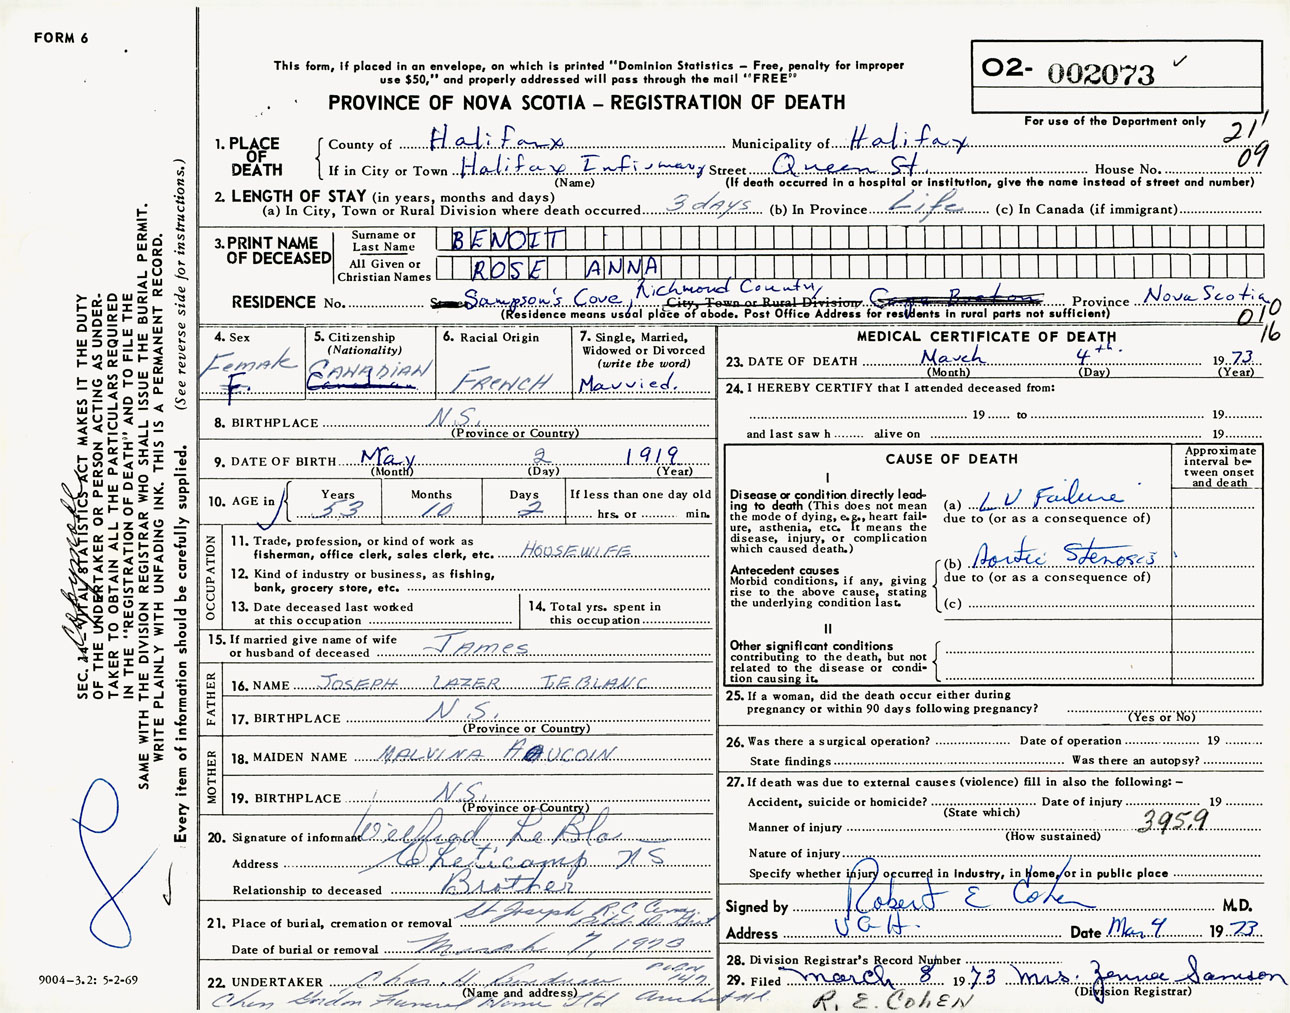 FORM 6
This form, if placed in an envelope, on which is printed "Dominion Statistics – Free, penalty for improper
use $50," and properly addressed will pass through the mail "FREE"
O2- 002073 ✓
For use of the Department only
PROVINCE OF NOVA SCOTIA – REGISTRATION OF DEATH
21'
09
1. PLACE OF DEATH
County of Halifax Municipality of Halifax
If in City or Town Halifax Infirmary Street Queen St. House No.
(Name) (If death occurred in a hospital or institution, give the name instead of street and number)
2. LENGTH OF STAY (in years, months and days)
(a) In City, Town or Rural Division where death occurred 3 days (b) In Province Life (c) In Canada (if immigrant)
3. PRINT NAME OF DECEASED
Surname or Last Name BENOIT
All Given or Christian Names ROSE ANNA
RESIDENCE No. Sampson's Cove, Richmond County City, Town or Rural Division Cape Breton Province Nova Scotia
(Residence means usual place of abode. Post Office Address for residents in rural parts not sufficient)
010
16
4. Sex Female F.
5. Citizenship (Nationality) CANADIAN Canadian
6. Racial Origin FRENCH
7. Single, Married, Widowed or Divorced (write the word) Married.
8. BIRTHPLACE N.S.
(Province or Country)
9. DATE OF BIRTH May 2 1919
(Month) (Day) (Year)
10. AGE in Years 53 Months 10 Days 2 If less than one day old hrs. or min.
OCCUPATION
11. Trade, profession, or kind of work as
fisherman, office clerk, sales clerk, etc. HOUSEWIFE
12. Kind of industry or business, as fishing,
bank, grocery store, etc.
13. Date deceased last worked at this occupation
14. Total yrs. spent in this occupation
15. If married give name of wife
or husband of deceased JAMES
FATHER
16. NAME JOSEPH LAZER LEBLANC
17. BIRTHPLACE N.S.
(Province or Country)
MOTHER
18. MAIDEN NAME MALVINA AUCOIN
19. BIRTHPLACE N.S.
(Province or Country)
20. Signature of informant Wilfred LeBla
Address Cheticamp NS
Relationship to deceased Brother
21. Place of burial, cremation or removal St Joseph R.C.
Date of burial or removal March 7, 1973
22. UNDERTAKER Chas. H.
(Name and address)
Chas Gordon Funeral Home Ltd
MEDICAL CERTIFICATE OF DEATH
23. DATE OF DEATH March 4th. 1973
(Month) (Day) (Year)
24. I HEREBY CERTIFY that I attended deceased from:
19 to 19
and last saw h alive on 19
CAUSE OF DEATH
Approximate interval between onset and death
I
Disease or condition directly lead-
ing to death (This does not mean
the mode of dying, e.g., heart fail-
ure, asthenia, etc. It means the
disease, injury, or complication
which caused death.)
(a) L V Failure
due to (or as a consequence of)
Antecedent causes
Morbid conditions, if any, giving
rise to the above cause, stating
the underlying condition last.
(b) Aortic Stenosis
due to (or as a consequence of)
(c)
II
Other significant conditions
contributing to the death, but not
related to the disease or condi-
tion causing it.
25. If a woman, did the death occur either during
pregnancy or within 90 days following pregnancy?
(Yes or No)
26. Was there a surgical operation? Date of operation 19
State findings Was there an autopsy?
27. If death was due to external causes (violence) fill in also the following: –
Accident, suicide or homicide? Date of injury 19
(State which)
Manner of injury 3959
(How sustained)
Nature of injury
Specify whether injury occurred in Industry, in home, or in public place
Signed by Robert E Cohen M.D.
Address V G H. Date Mar 4 1973
28. Division Registrar's Record Number
29. Filed March 8 1973 Mrs. Samson
(Division Registrar)
R. E. COHEN
SEC. VITAL STATISTICS ACT MAKES IT THE DUTY
OF THE UNDERTAKER OR PERSON ACTING AS UNDER-
TAKER TO OBTAIN ALL THE PARTICULARS REQUIRED
IN THE "REGISTRATION OF DEATH" AND TO FILE THE
SAME WITH THE DIVISION REGISTRAR WHO SHALL ISSUE THE BURIAL PERMIT.
WRITE PLAINLY WITH UNFADING INK. THIS IS A PERMANENT RECORD.
Every item of information should be carefully supplied. (See reverse side for instructions.)
9004–3.2: 5-2-69